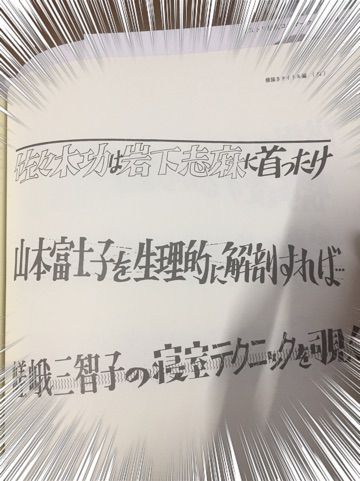 横描きタイトル編
佐々木功は岩下志麻に首ったけ
山本富士子を生理的に解剖すれば…
嵯峨三智子の寝室テクニックを覗